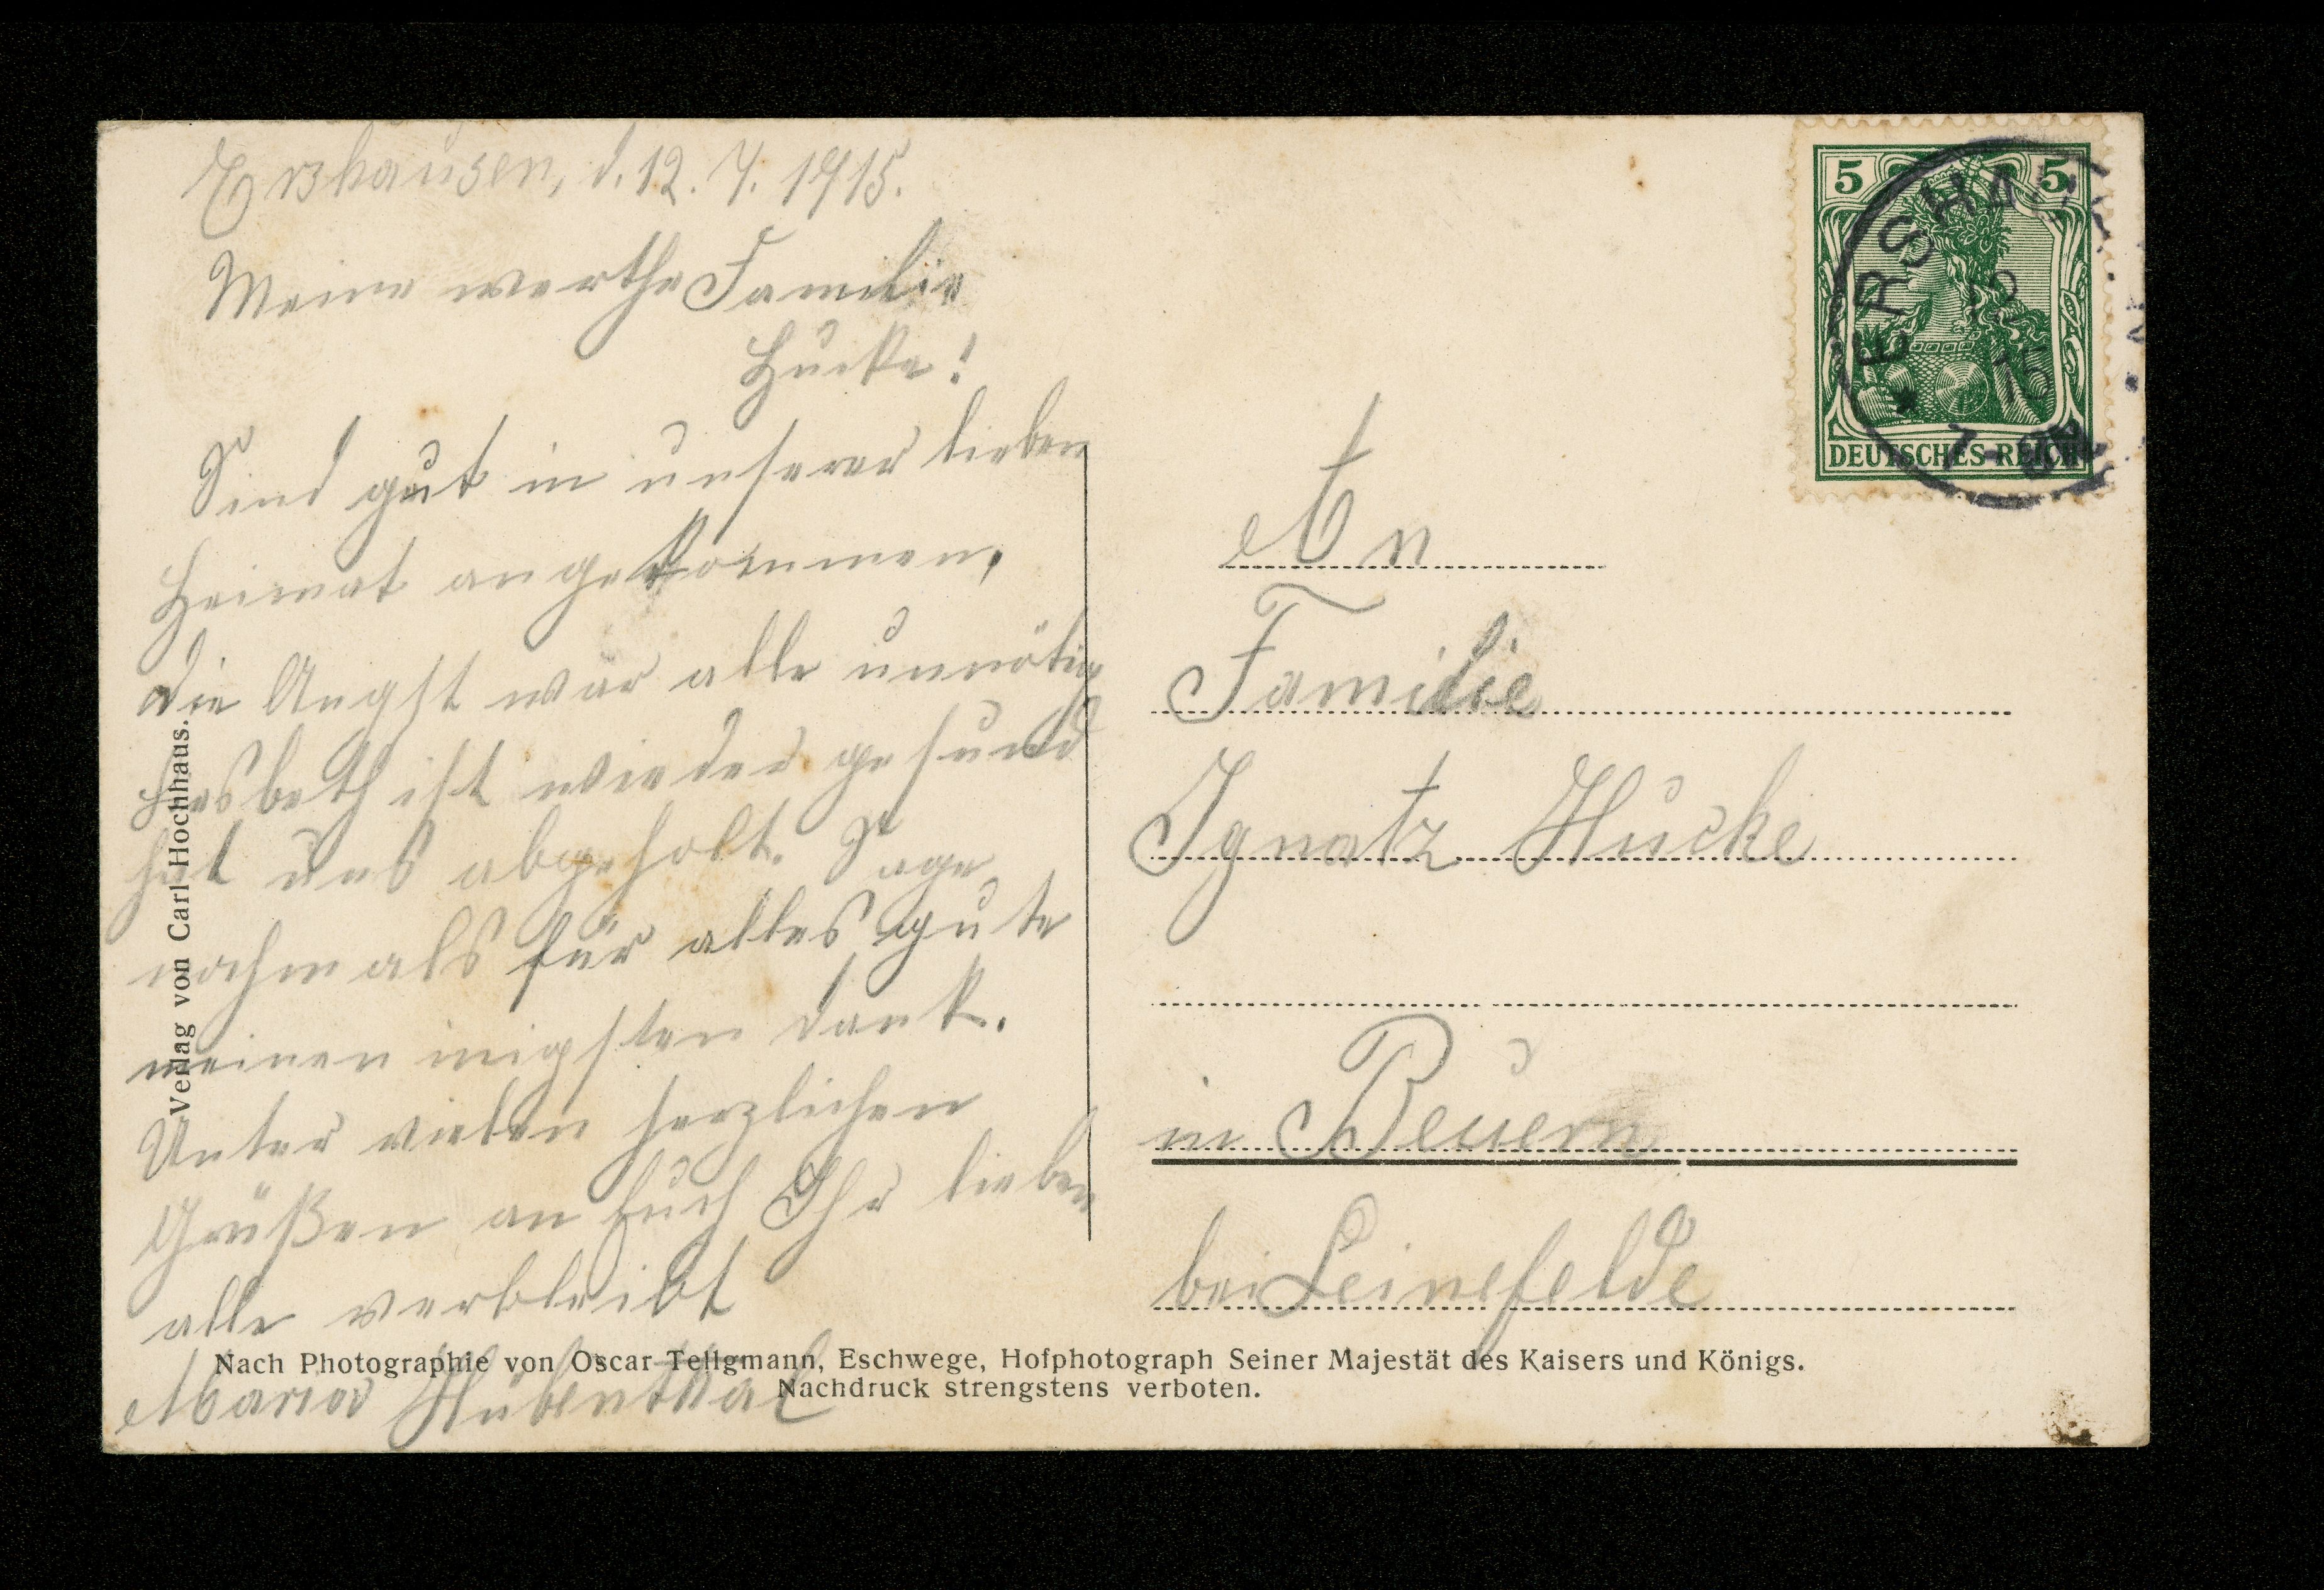 Ershausen, d. 12. 7. 1915.
Meine werthe Familie
Hucke!
Sind gut in unserer lieben
Heimat angekommen,
die Angst war alle unnötig
Lisbeth ist wieder gesund
hat uns abgeholt. Sage
nochmals für alles gute
meinen inigsten Dank.
Unter vielen herzlichen
Grüßen an Euch Ihr lieben
alle verbleibt
Maria Hübenthal
Verlag von Carl Hochhaus.
5 5
DEUTSCHES REICH
ERSHAUSEN
12
15
An
Familie
Ignatz Hucke
in Beuern
bei Leinefelde
Nach Photographie von Oscar Tellgmann, Eschwege, Hofphotograph Seiner Majestät des Kaisers und Königs.
Nachdruck strengstens verboten.